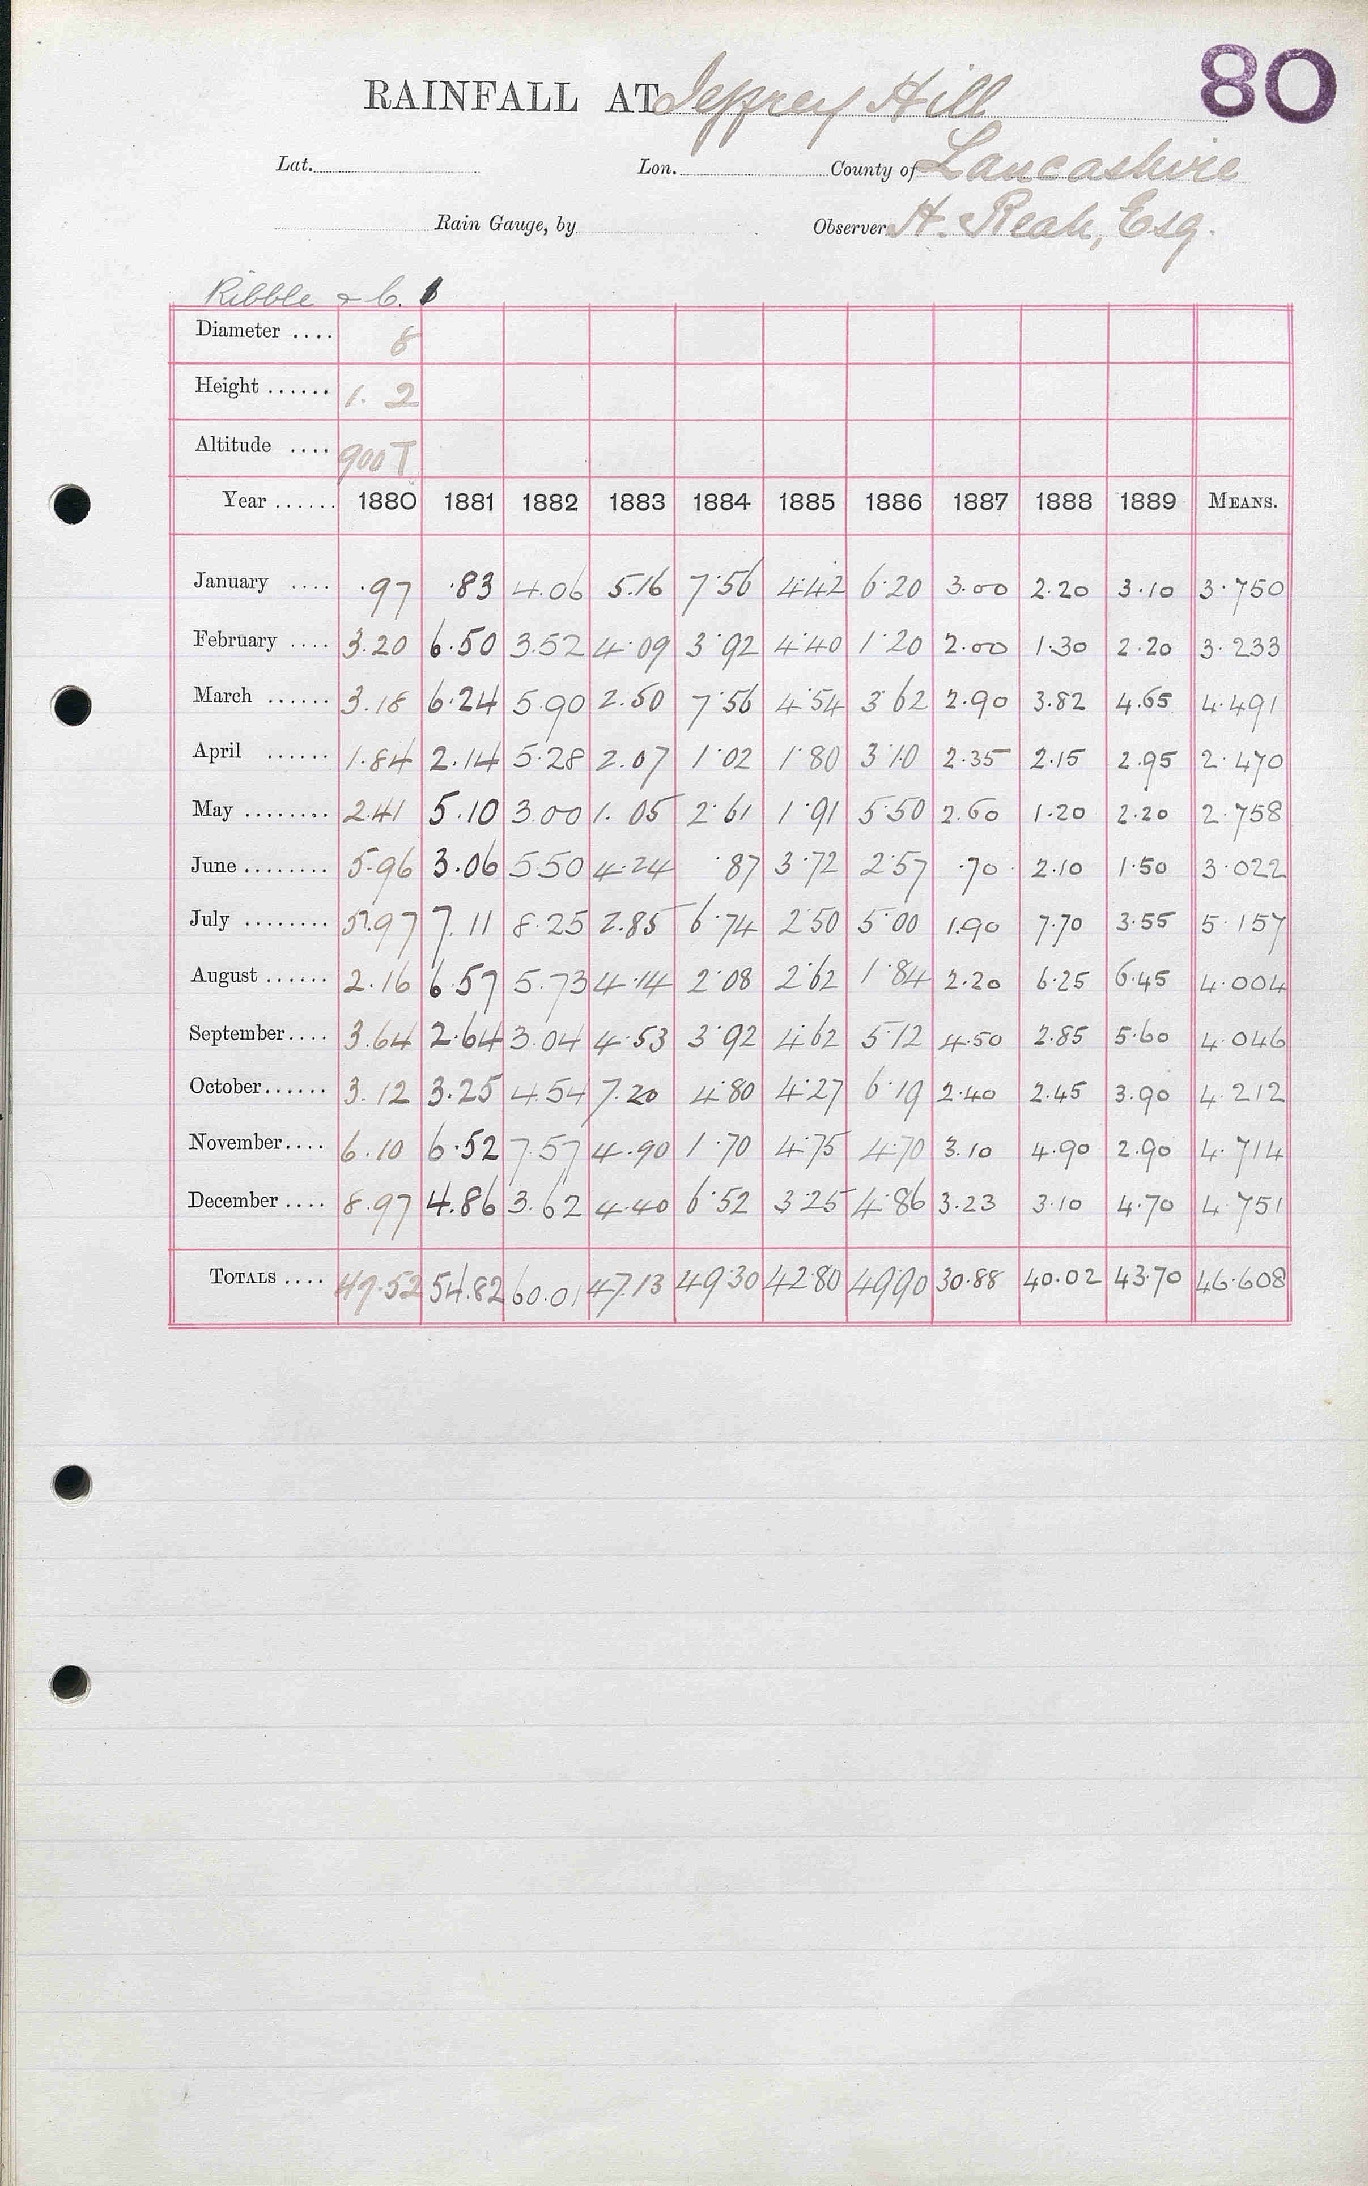 80
RAINFALL AT Jeffrey Hill
Lat. Lon. County of Lancashire
Rain Gauge, by Observer H. Reah, Esq.
Ribble & C. 1
Diameter .... 8
Height ...... 1. 2
Altitude .... 900 T
Year ...... 1880 1881 1882 1883 1884 1885 1886 1887 1888 1889 MEANS.
January .... .97 .83 4.06 5.16 7.56 4.42 6.20 3.00 2.20 3.10 3.750
February .... 3.20 6.50 3.52 4.09 3.92 4.40 1.20 2.00 1.30 2.20 3.233
March ...... 3.18 6.24 5.90 2.50 7.56 4.54 3.62 2.90 3.82 4.65 4.491
April ...... 1.84 2.14 5.28 2.07 1.02 1.80 3.10 2.35 2.15 2.95 2.470
May ........ 2.41 5.10 3.00 1.05 2.61 1.91 5.50 2.60 1.20 2.20 2.758
June ........ 5.96 3.06 5.50 4.24 .87 3.72 2.57 .70 2.10 1.50 3.022
July ........ 5.97 7.11 8.25 2.85 6.74 2.50 5.00 1.90 7.70 3.55 5.157
August ...... 2.16 6.57 5.73 4.14 2.08 2.62 1.84 2.20 6.25 6.45 4.004
September .... 3.64 2.64 3.04 4.53 3.92 4.62 5.12 4.50 2.85 5.60 4.046
October ...... 3.12 3.25 4.54 7.20 4.80 4.27 6.19 2.40 2.45 3.90 4.212
November .... 6.10 6.52 7.57 4.90 1.70 4.75 4.70 3.10 4.90 2.90 4.714
December .... 8.97 4.86 3.62 4.40 6.52 3.25 4.86 3.23 3.10 4.70 4.751
TOTALS .... 47.52 54.82 60.01 47.13 49.30 42.80 49.90 30.88 40.02 43.70 46.608